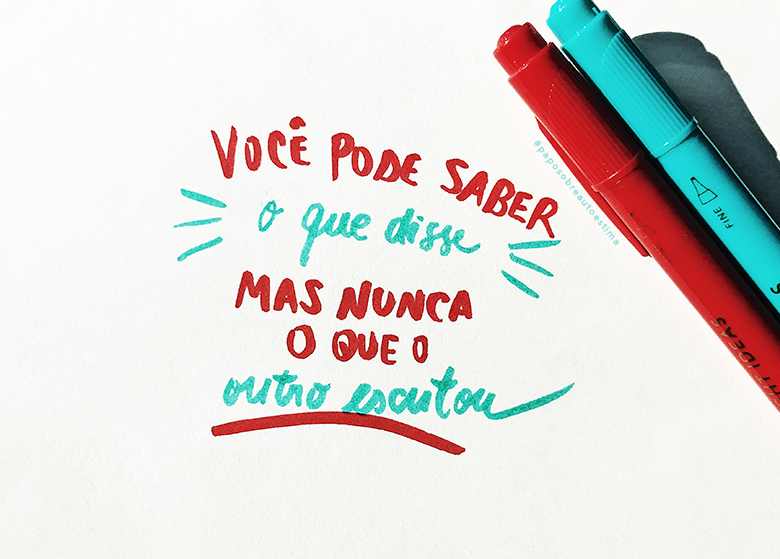 VOCÊ PODE SABER
o que disse
MAS NUNCA
O QUE O
outro escutou
#paposobreautoestima
FINE
IDEAS